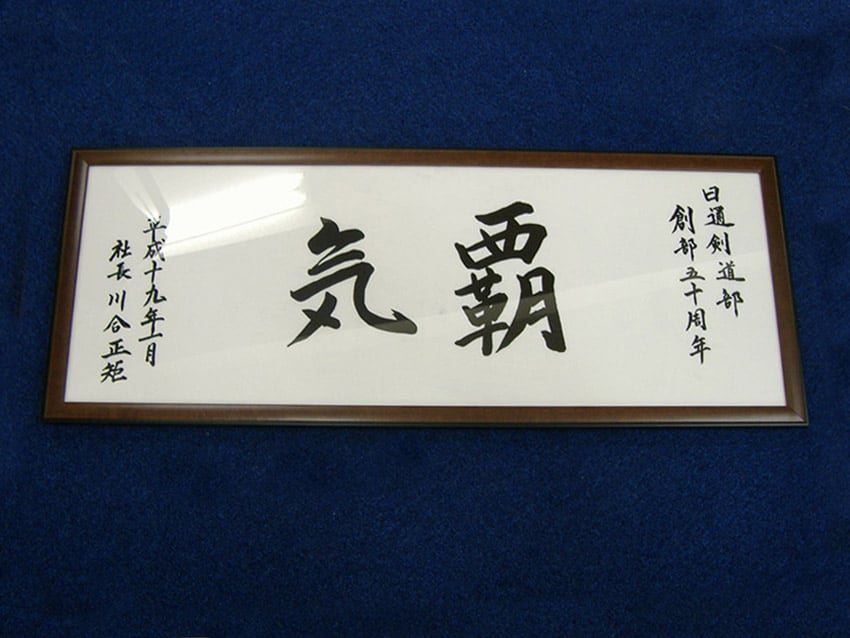 日通剣道部
創部五十周年
覇気
平成十九年一月
社長川合正矩